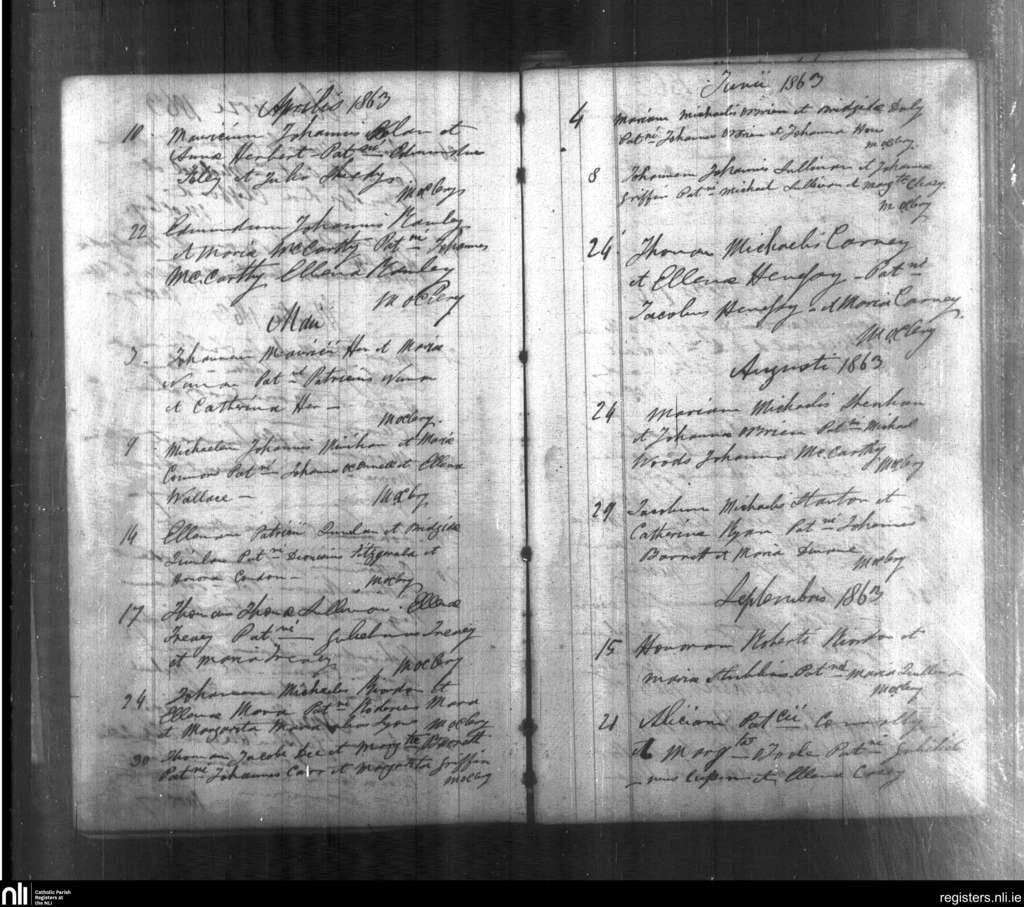 Aprilis 1863
10 Mauricium Johannis Nolan et
Anna Herbert Pat ni Edmundus
Foley et Julia Sheehy
McClery
22 Edmundum Johannis Hanley
et Maria McCarthy - Pat ni Johannes
McCarthy Ellena Hanley
McClery
Maii
3. Johannem Mauricii Her et Maria
Pat ni Patricius
et Catherina Her -
McClery
9 Michaelem Johannis Minihan et Maria
Connors Pat ni Johannes et Ellena
Wallace -
McClery
14 Ellenam Patricii Quinlan et Bridgida
Quinlan Pat ni Dionisius Fitzgerald et
Honora Condon -
McClery
17 Thomam Thoma Sullivan - Ellena
Treacy Pat ni - Gulielmus Treacy
et Maria Treacy
McClery
24. Johannem Michaelis et
Ellena Mara Pat ni Mara
et Margarita Mara
McClery
30 Thomam Jacobi Lee et Marg ta Barrett
Pat ni Johannes Carr et Margarita Griffin
McClery
Junii 1863
4 Mariam Michaelis OBrien et Bridgida Daly
Pat ni Johannes OBrien et Johanna Her
McClery
8 Johannem Johannis Sullivan et Johanna
Griffin Pat ni Michael Sullivan et Marg ta Cleary
McClery
24. Thomam Michaelis Carney
et Ellena Henessy - Pat ni
Jacobus Henessy - et Maria Carney
McClery
Augusti 1863
24 Mariam Michaelis Shenhan
et Johanna OBrien Pat ni Michael
Woods Johanna McCarthy
McClery
29 Jacobum Michaelis Stanton et
Catherina Ryan Pat ni Johannes
Barrett et Maria
McClery
Septembris 1863
15 Honoram Roberti et
Maria Pat ni Maria Sullivan
McClery
21 Aliciam Pat cii Connolly
et Marg ta Pat ni Guliel
-mus et Ellena Casey
nli
Catholic Parish
Registers at
the NLI
registers.nli.ie